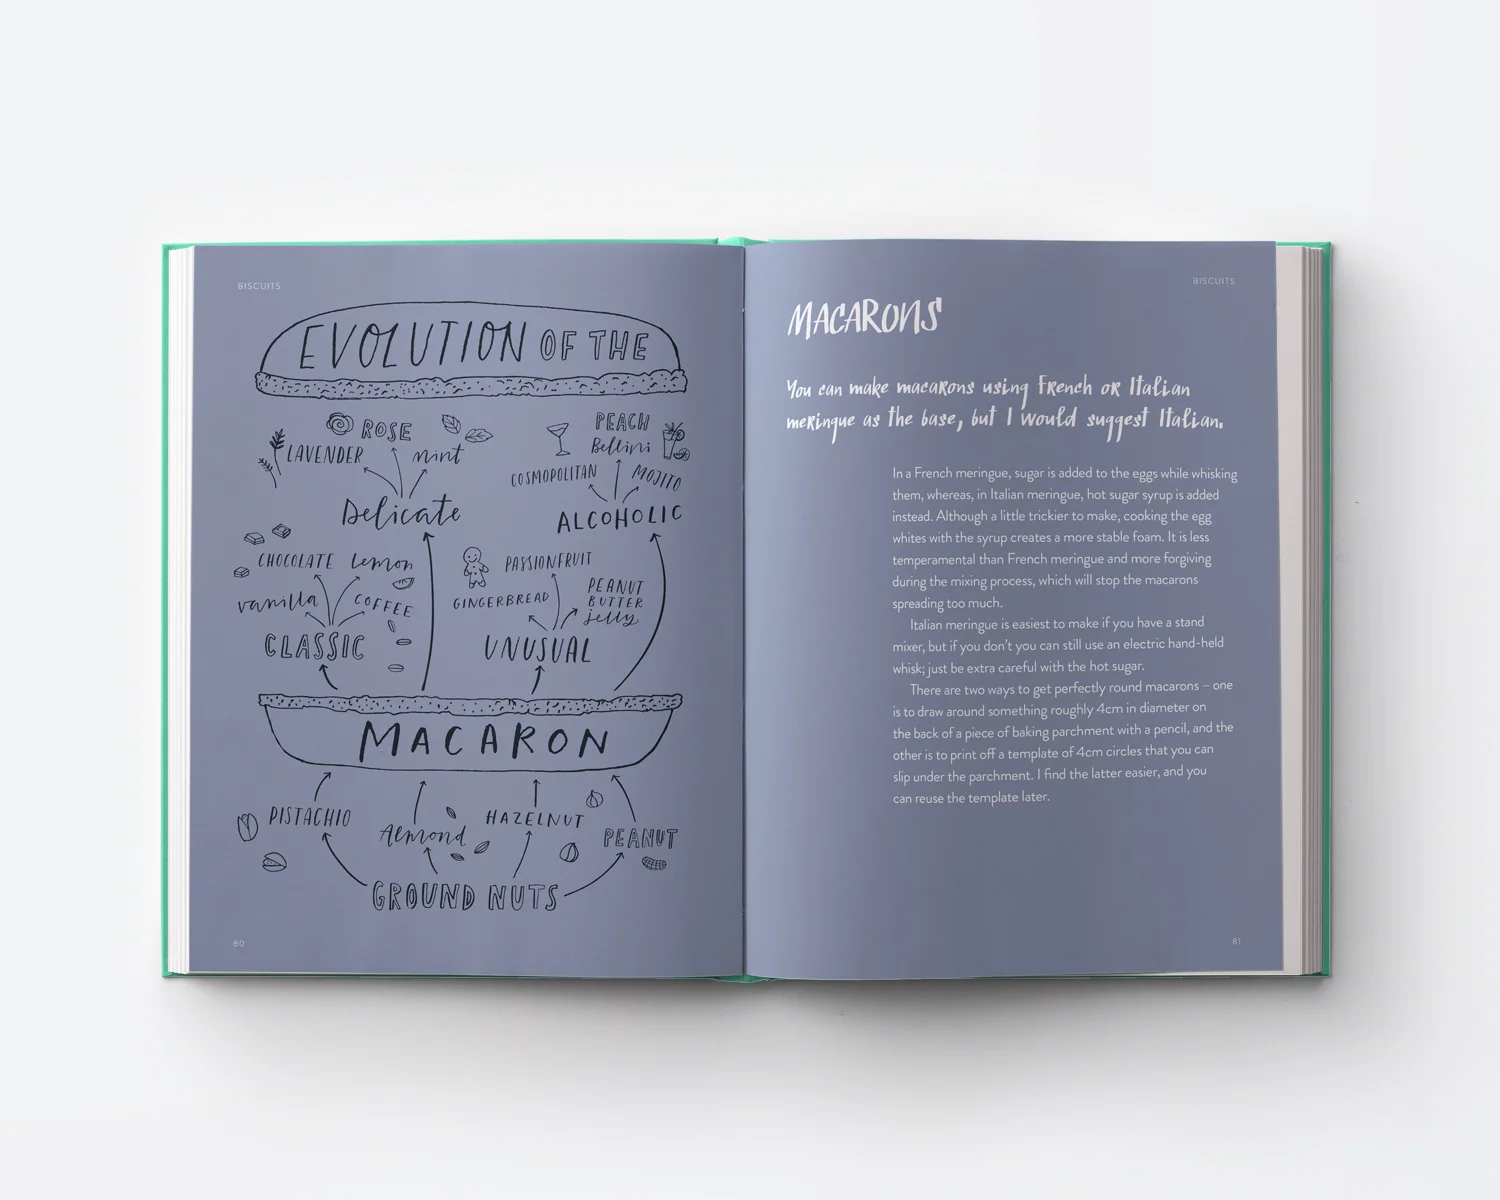 BISCUITS
EVOLUTION OF THE
ROSE
LAVENDER
mint
Delicate
PEACH
Bellini
COSMOPOLITAN
MOJITO
ALCOHOLIC
CHOCOLATE
Lemon
vanilla
COFFEE
CLASSIC
PASSIONFRUIT
GINGERBREAD
PEANUT
BUTTER
jelly
UNUSUAL
MACARON
PISTACHIO
Almond
HAZELNUT
PEANUT
GROUND NUTS
80
BISCUITS
MACARONS
You can make macarons using French or Italian
meringue as the base, but I would suggest Italian.
In a French meringue, sugar is added to the eggs while whisking
them, whereas, in Italian meringue, hot sugar syrup is added
instead. Although a little trickier to make, cooking the egg
whites with the syrup creates a more stable foam. It is less
temperamental than French meringue and more forgiving
during the mixing process, which will stop the macarons
spreading too much.
Italian meringue is easiest to make if you have a stand
mixer, but if you don't you can still use an electric hand-held
whisk; just be extra careful with the hot sugar.
There are two ways to get perfectly round macarons – one
is to draw around something roughly 4cm in diameter on
the back of a piece of baking parchment with a pencil, and the
other is to print off a template of 4cm circles that you can
slip under the parchment. I find the latter easier, and you
can reuse the template later.
81